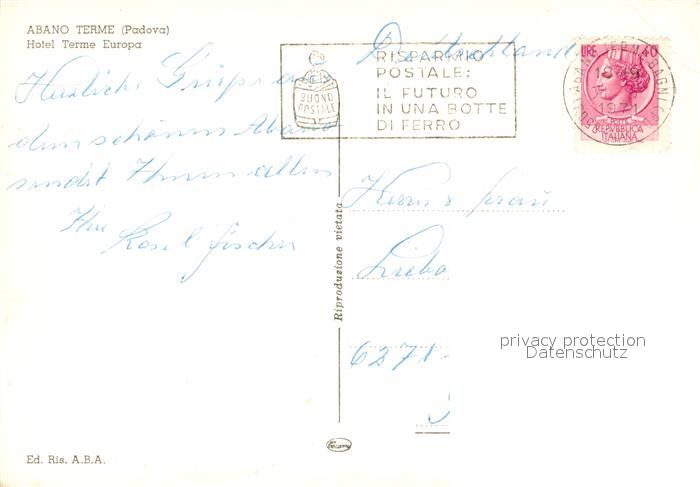 ABANO TERME (Padova)
Hotel Terme Europa
Deutschland
RISPARMIO
POSTALE:
IL FUTURO
IN UNA BOTTE
DI FERRO
BUONO
POSTALE
LIRE 40
1971
POSTE
REPVBBLICA
ITALIANA
Herzliche Grüße aus
dem schönen Abano
sendet Ihnen allen
Ihre Rosel Fischer
Riproduzione vietata
Herrn & Frau
6271
privacy protection
Datenschutz
Ed. Ris. A.B.A.